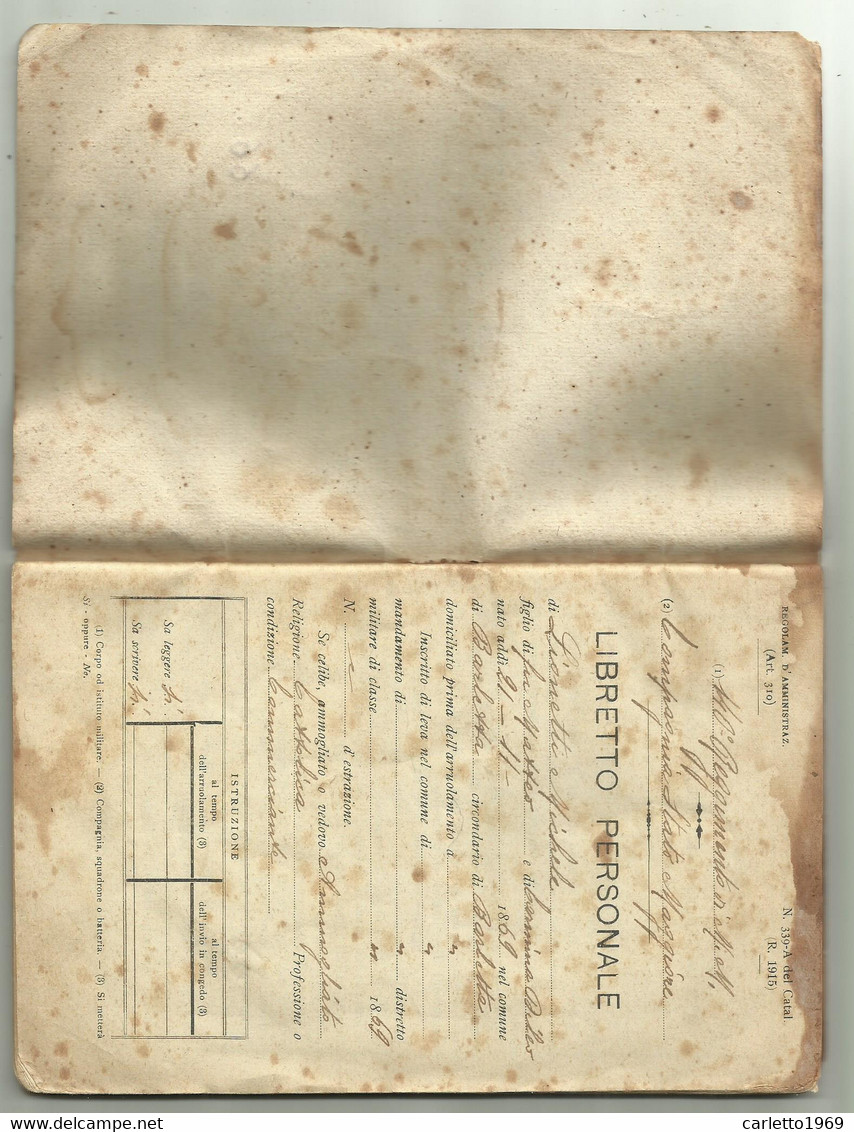 REGOLAM. D'AMMINISTRAZ.
(Art. 310)
N. 339-A del Catal.
(R. 1915)
(1) Reggimento
(2) Compagnia Stato Maggiore
LIBRETTO PERSONALE
di Lionetti Michele
figlio di fu Matteo e di
nato addì 21 - 11 - 1869 nel comune
di Barletta circondario di Barletta
domiciliato prima dell'arruolamento a "
Inscritto di leva nel comune di "
mandamento di " distretto
militare di classe " 1869
N. d'estrazione.
Se celibe, ammogliato o vedovo Ammogliato
Religione Cattolica Professione o
condizione Commerciante
ISTRUZIONE
al tempo
dell'arruolamento (3)
al tempo
dell'invio in congedo (3)
Sa leggere Sì
Sa scrivere Sì
(1) Corpo od istituto militare. — (2) Compagnia, squadrone o batteria. — (3) Si metterà
Sì - oppure - No.
delcampe.net
carletto1969